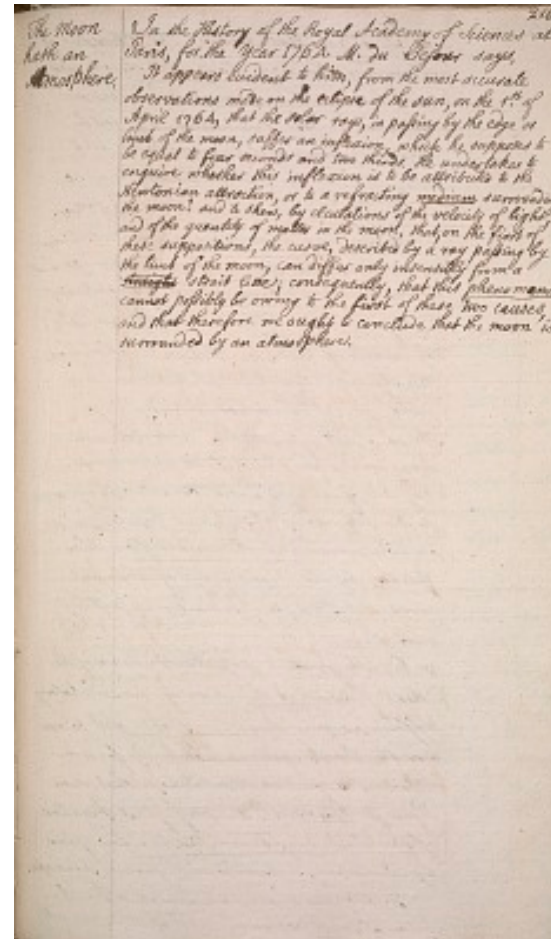 The Moon
hath an
Atmosphere.
In the History of the Royal Academy of Sciences at
Paris, for the Year 1762 M. du Sejour says,
It appears evident to him, from the most accurate
observations made on the eclipse of the sun, on the 1st of
April 1764, that the solar rays, in passing by the edge or
limb of the moon, suffer an inflexion, which he supposes to
be equal to four seconds and two thirds, he undertakes to
enquire whether this inflexion is to be attributed to the
Newtonian attraction, or to a refracting medium surrounding
the moon? and to shew, by calculations of the velocity of light
and of the quantity of matter in the moon, that, on the first of
these suppositions, the curve, described by a ray passing by
the limb of the moon, can differ only insensibly from a
strait line; consequently, that this phenomena
cannot possibly be owing to the first of these two causes,
and that therefore we ought to conclude that the moon is
surrounded by an atmosphere.